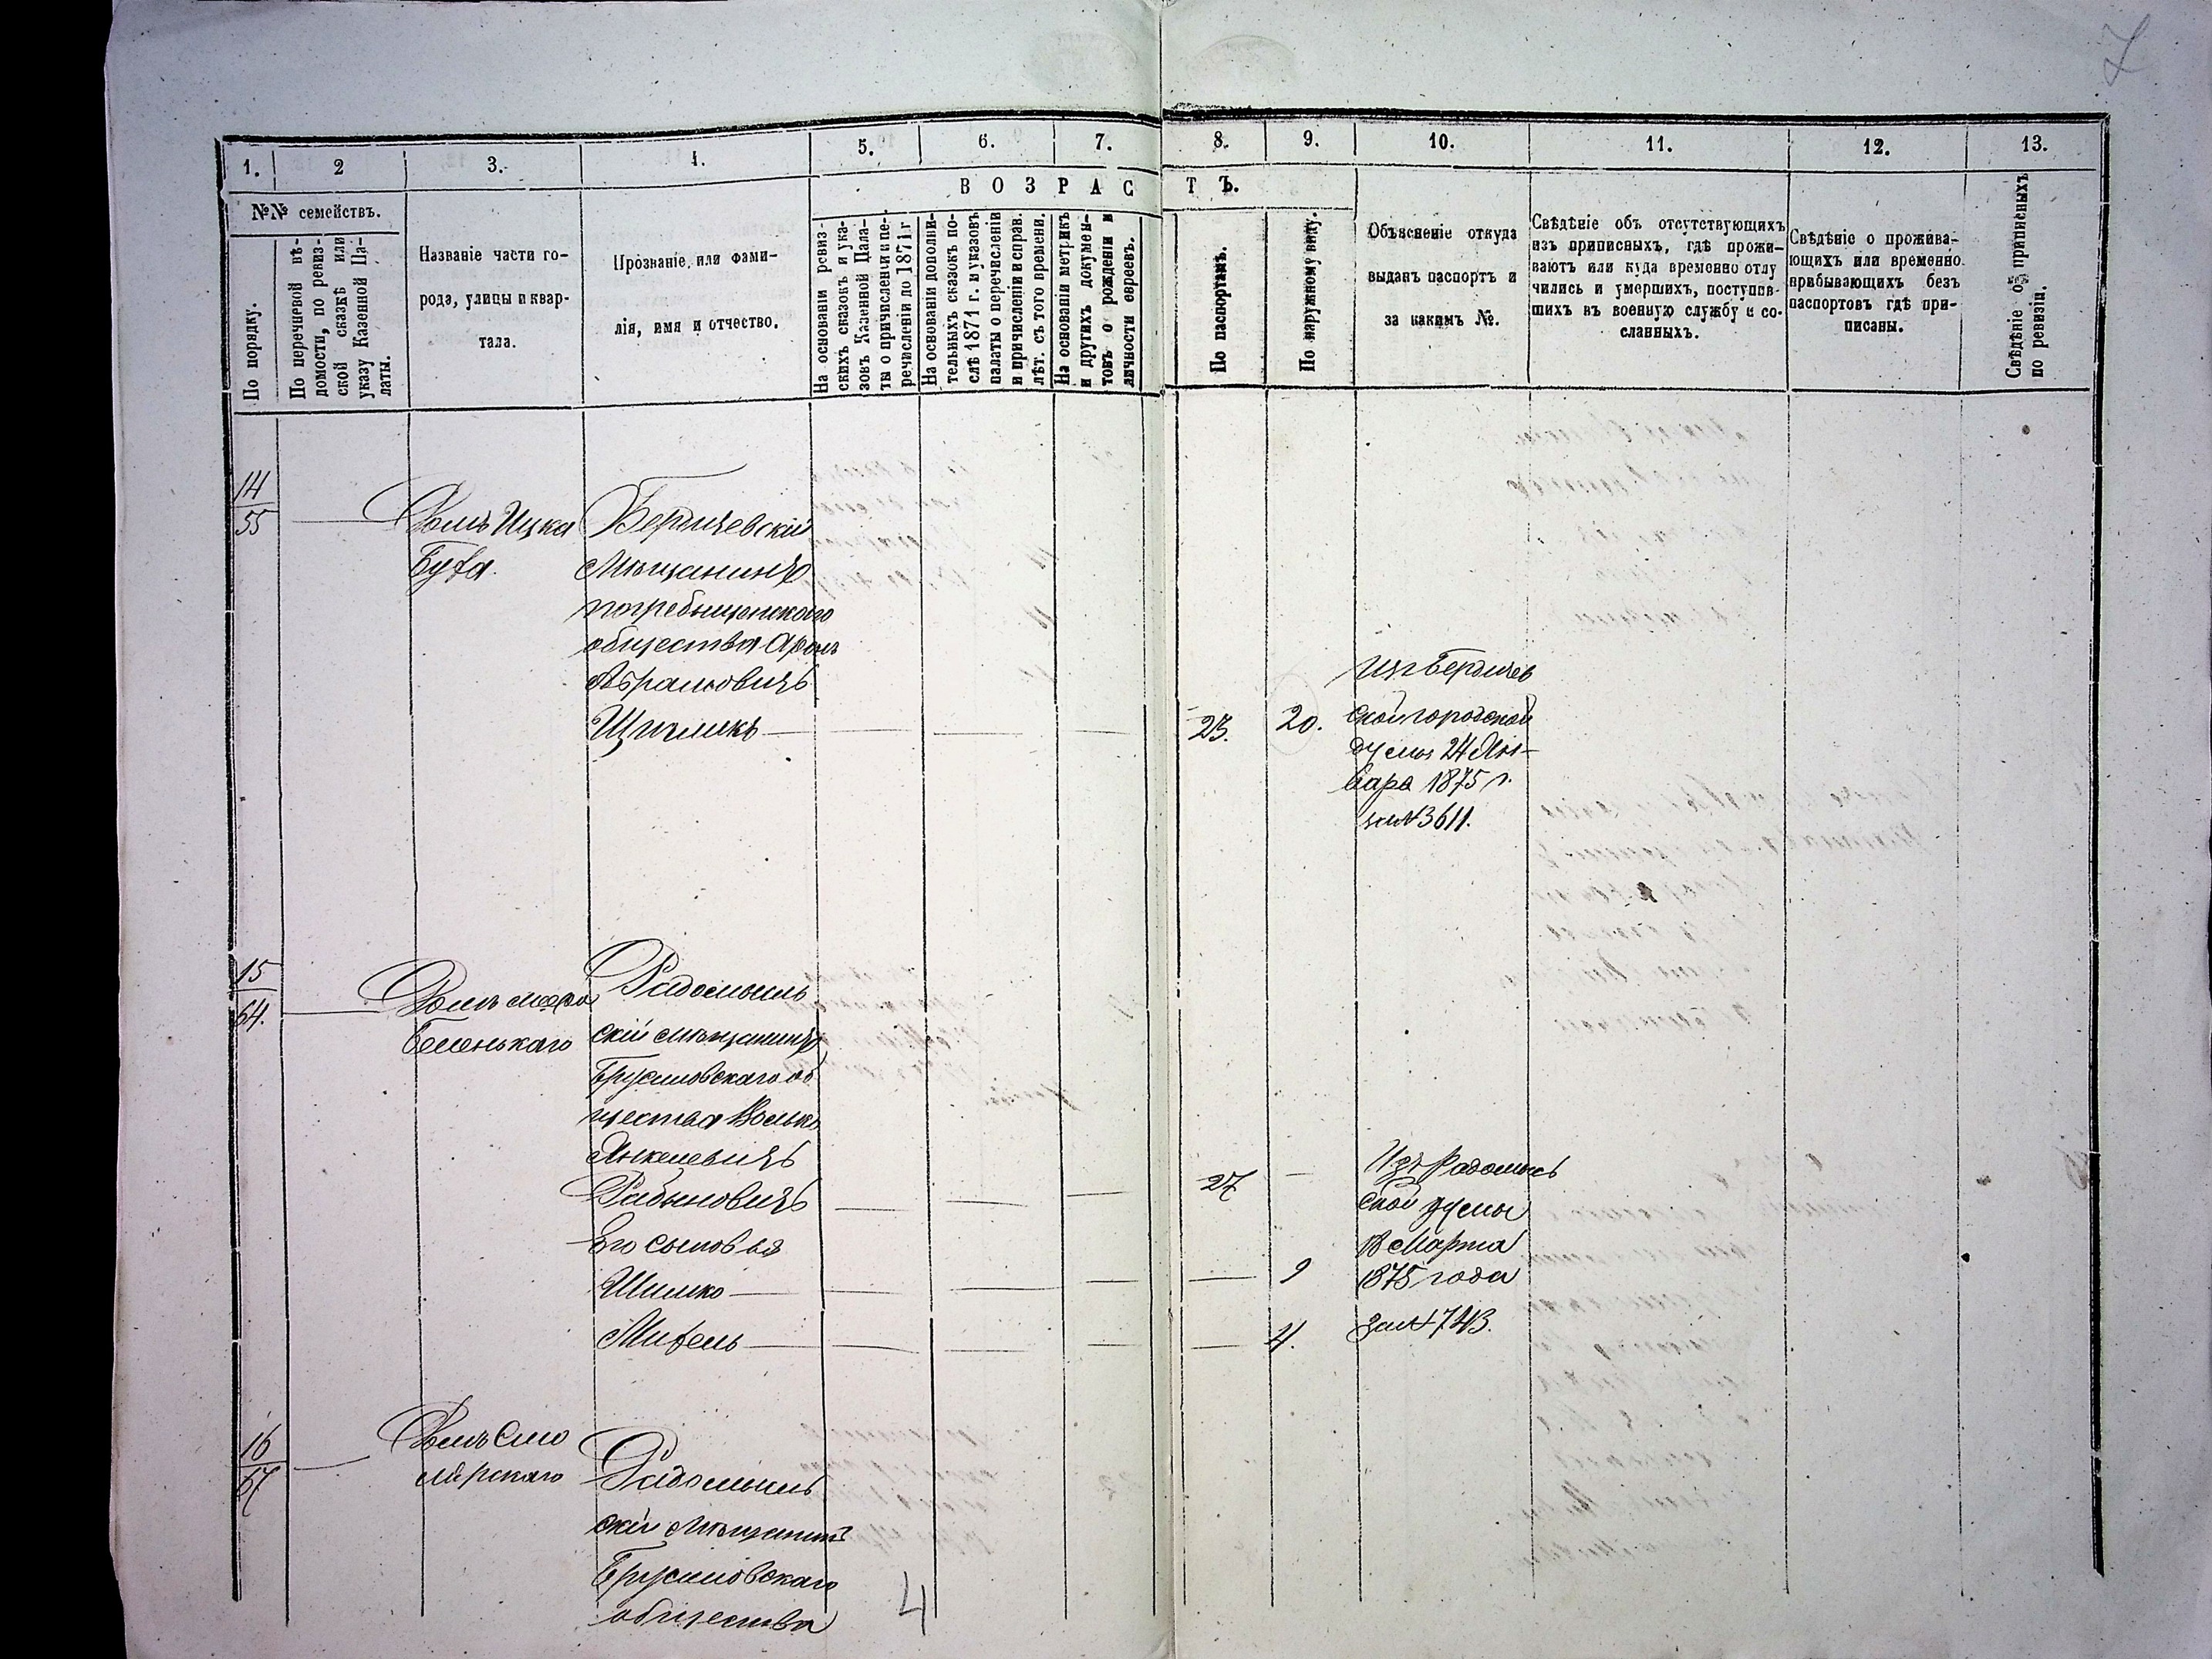 7
1. 2 3. 4. 5. 6. 7. 8. 9. 10. 11. 12. 13.
ВОЗРАСТЪ.
№№ семействъ.
По порядку.
По перечневой вѣ-
домости, по ревиз-
ской сказкѣ или
указу Казенной Па-
латы.
Названіе части го-
рода, улицы и квар-
тала.
Прозваніе, или фами-
лія, имя и отчество.
На основаніи ревиз-
скихъ сказокъ и ука-
зовъ Казенной Пала-
ты о причисленіи и пе-
речисленіи до 1871 г
На основаніи дополни-
тельныхъ сказокъ по-
слѣ 1871 г. и указовъ
палаты о перечисленіи
и причисленіи и справ.
лѣт. съ того времени.
На основаніи метрикъ
и другихъ докумен-
товъ о рожденіи и
личности евреевъ.
По паспортамъ.
По наружному виду.
Объясненіе откуда
выданъ паспортъ и
за какимъ №.
Свѣдѣніе объ отсутствующихъ
изъ приписныхъ, гдѣ прожи-
ваютъ или куда временно отлу
чились и умершихъ, поступив-
шихъ въ военную службу и со-
сланныхъ.
Свѣдѣніе о прожива-
ющихъ или временно
прибывающихъ безъ
паспортовъ гдѣ при-
писаны.
Свѣдѣніе объ приписныхъ
по ревизіи.
14
55
Домъ Ицка
Буха.
Бердичевскій
Мѣщанинъ
погребыщенского
общества Аронъ
Абрамовичъ
23. 20.
Изъ Бердичев
ской городской
думы 24 Ян-
варя 1875 г.
за № 3611.
15
64.
Домъ
Беленькаго
Радомысль
скій мѣщанинъ
Брусиловскаго об
щества Волько
Янкелевичъ
Рабиновичъ
Его сыновья
Шимко
Михель
27
9
4.
Изъ Радомысь
ской думы
18 Марта
1875 года
за № 743.
16
67
Домъ Смо
лярскаго
Радомысль
скій Мѣщанинъ
Брусиловскаго
общества
4